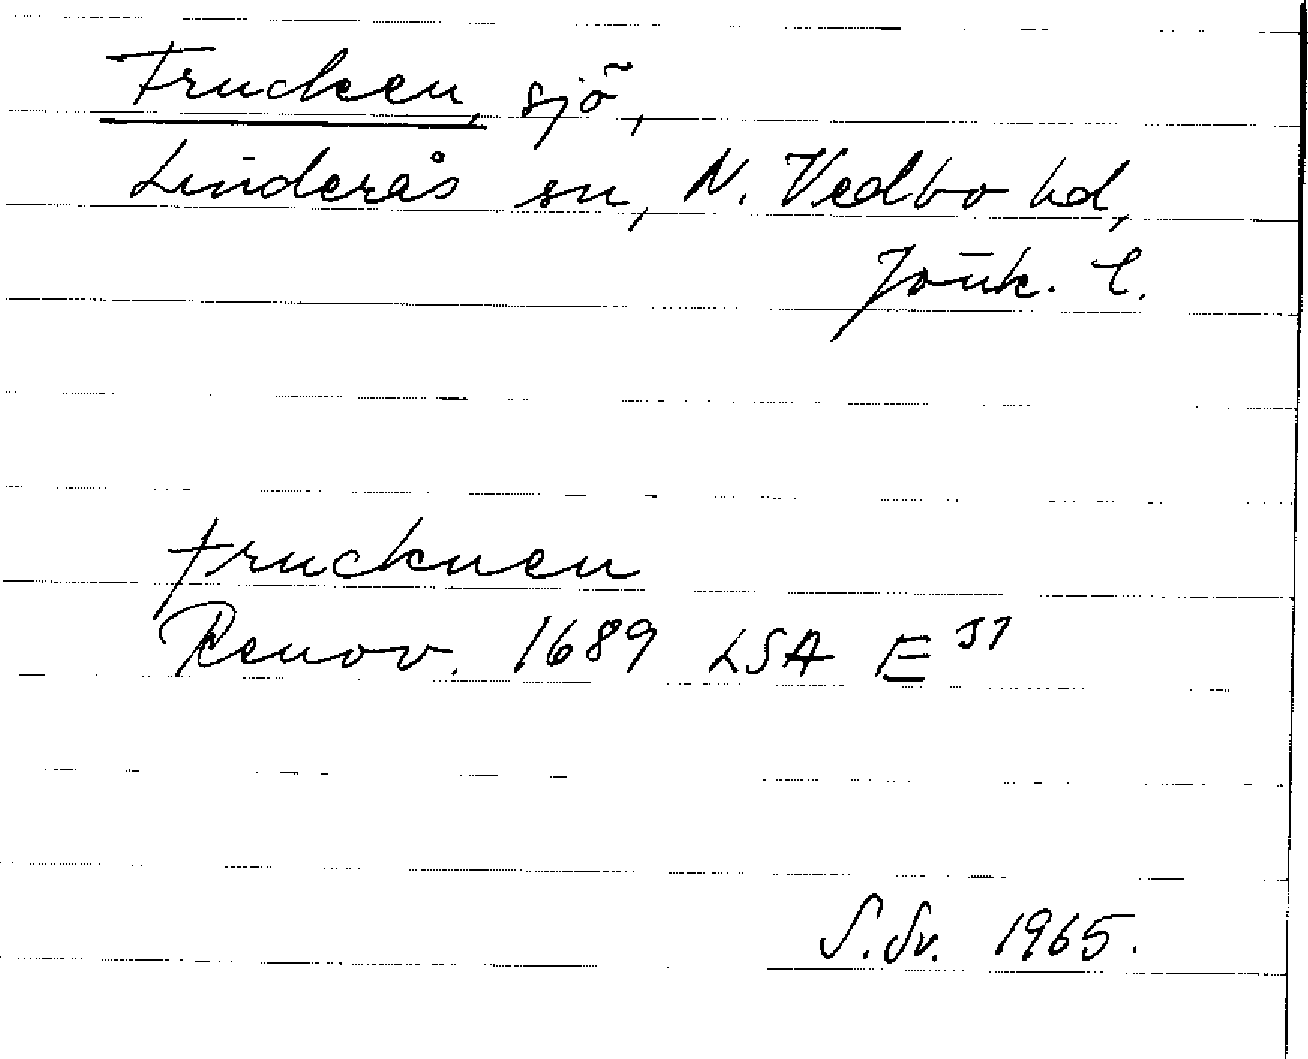 Frucken, sjö,
Linderås sn, N. Vedbo hd,
Jönk. l.
frucknen
Renov. 1689 LSA E 57
S. Sv. 1965.